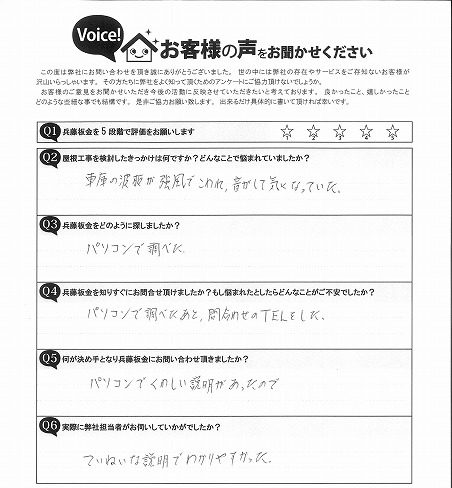 Voice!
お客様の声をお聞かせください
この度は弊社にお問い合わせを頂き誠にありがとうございました。世の中には弊社の存在やサービスをご存知ないお客様が
沢山いらっしゃいます。その方たちに弊社をよく知って頂くためのアンケートにご協力頂けないでしょうか。
お客様のご意見をお聞かせいただき今後の活動に反映させていただきたいと考えております。良かったこと、嬉しかったこと
どのような些細な事でも結構です。是非ご協力お願い致します。出来るだけ具体的に書いて頂ければ幸いです。
Q1 兵藤板金を5段階で評価をお願いします ☆1 ☆2 ☆3 ☆4 ☆5
Q2 屋根工事を検討したきっかけは何ですか?どんなことで悩まれていましたか?
車庫の波板が強風でこわれ,音がして気になっていた。
Q3 兵藤板金をどのように探しましたか?
パソコンで調べた
Q4 兵藤板金を知りすぐにお問合せ頂けましたか?もし悩まれたとしたらどんなことがご不安でしたか?
パソコンで調べたあと,問合わせのTELをした。
Q5 何が決め手となり兵藤板金にお問い合わせ頂きましたか?
パソコンでくわしい説明があったので
Q6 実際に弊社担当者がお伺いしていかがでしたか?
ていねいな説明でわかりやすかった。